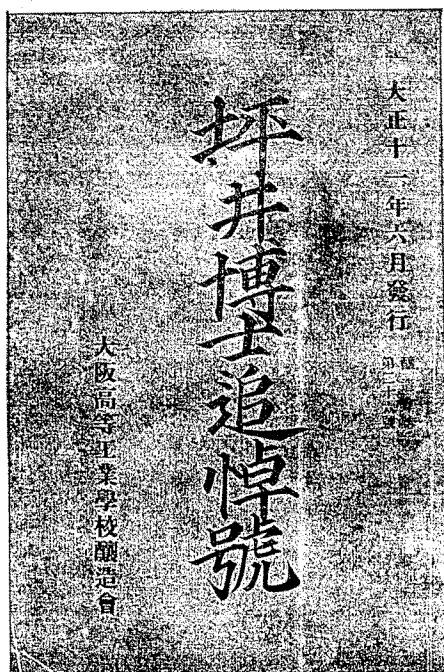 大正十一年六月發行
坪井博士追悼號
大阪高等工業學校釀造會